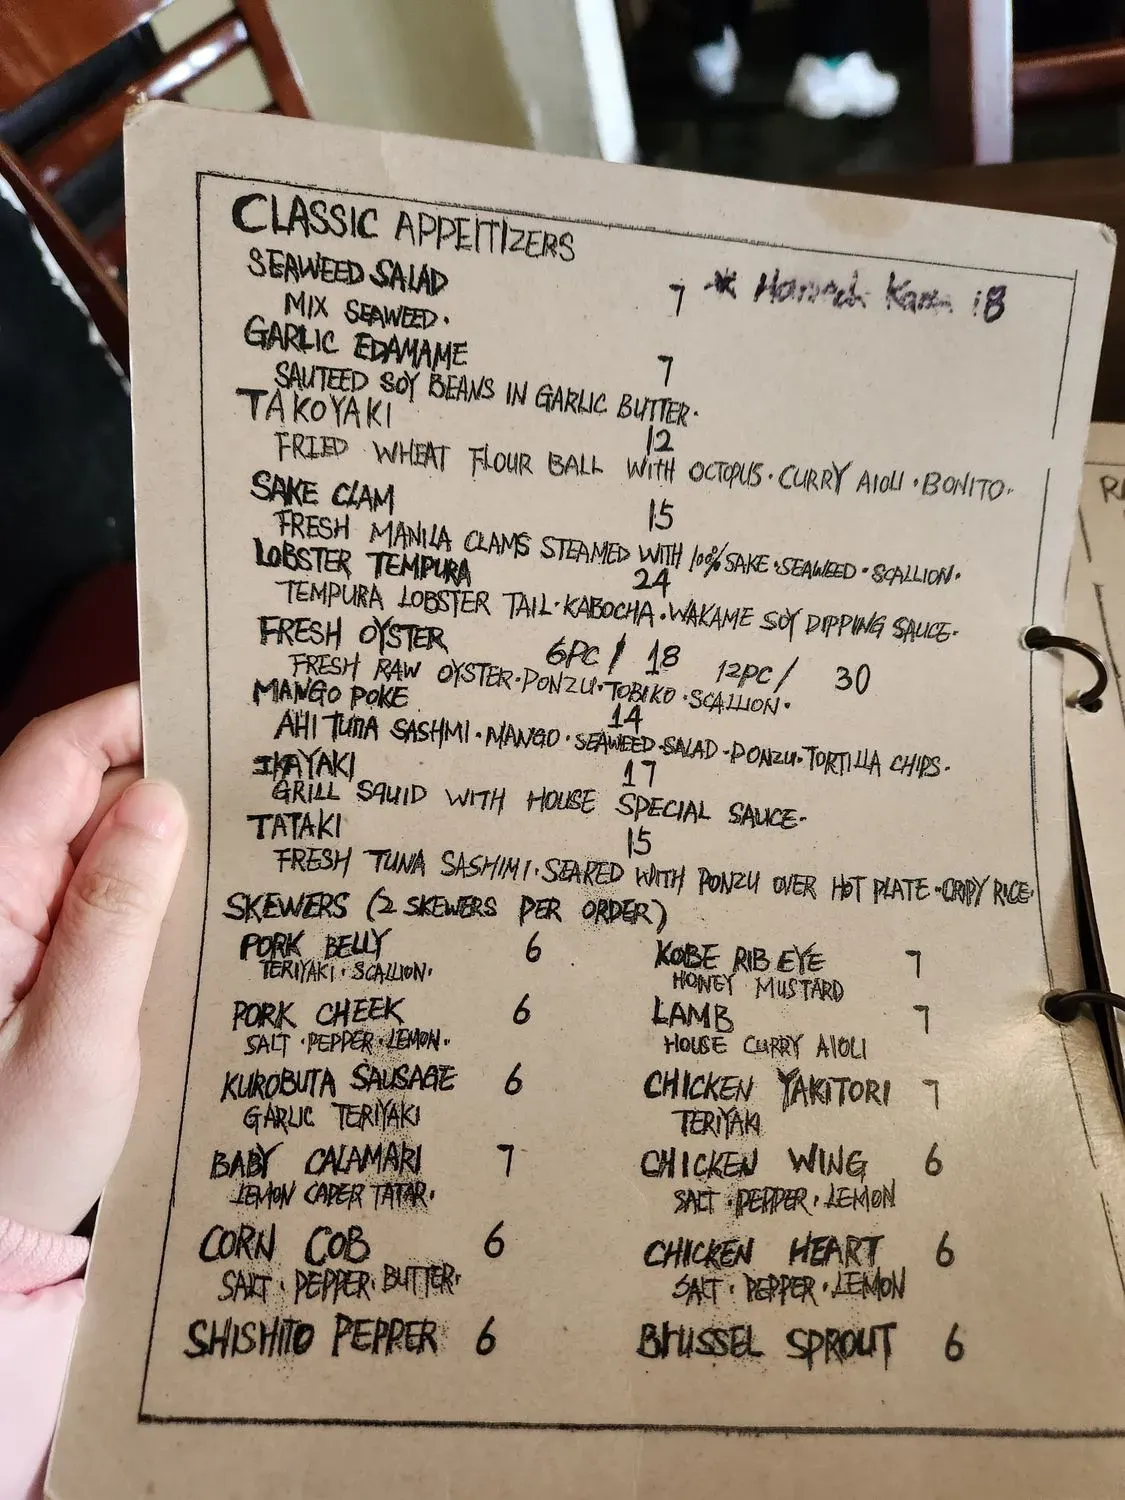 CLASSIC APPEITIZERS
SEAWEED SALAD 7
MIX SEAWEED.
* Kama 18
GARLIC EDAMAME 7
SAUTEED SOY BEANS IN GARLIC BUTTER.
TAKOYAKI 12
FRIED WHEAT FLOUR BALL WITH OCTOPUS · CURRY AIOLI · BONITO.
SAKE CLAM 15
FRESH MANILA CLAMS STEAMED WITH 100% SAKE · SEAWEED · SCALLION.
LOBSTER TEMPURA 24
TEMPURA LOBSTER TAIL · KABOCHA · WAKAME SOY DIPPING SAUCE.
FRESH OYSTER 6PC / 18 12PC / 30
FRESH RAW OYSTER · PONZU · TOBIKO · SCALLION.
MANGO POKE 14
AHI TUNA SASHMI · MANGO · SEAWEED SALAD · PONZU · TORTILLA CHIPS.
IKAYAKI 17
GRILL SQUID WITH HOUSE SPECIAL SAUCE.
TATAKI 15
FRESH TUNA SASHIMI · SEARED WITH PONZU OVER HOT PLATE · CRIPY RICE.
SKEWERS (2 SKEWERS PER ORDER)
PORK BELLY 6
TERIYAKI · SCALLION.
PORK CHEEK 6
SALT · PEPPER · LEMON.
KUROBUTA SAUSAGE 6
GARLIC TERIYAKI
BABY CALAMARI 7
LEMON CAPER TATAR.
CORN COB 6
SALT · PEPPER · BUTTER.
SHISHITO PEPPER 6
KOBE RIB EYE 7
HONEY MUSTARD
LAMB 7
HOUSE CURRY AIOLI
CHICKEN YAKITORI 7
TERIYAKI
CHICKEN WING 6
SALT · PEPPER · LEMON
CHICKEN HEART 6
SALT · PEPPER · LEMON
BRUSSEL SPROUT 6